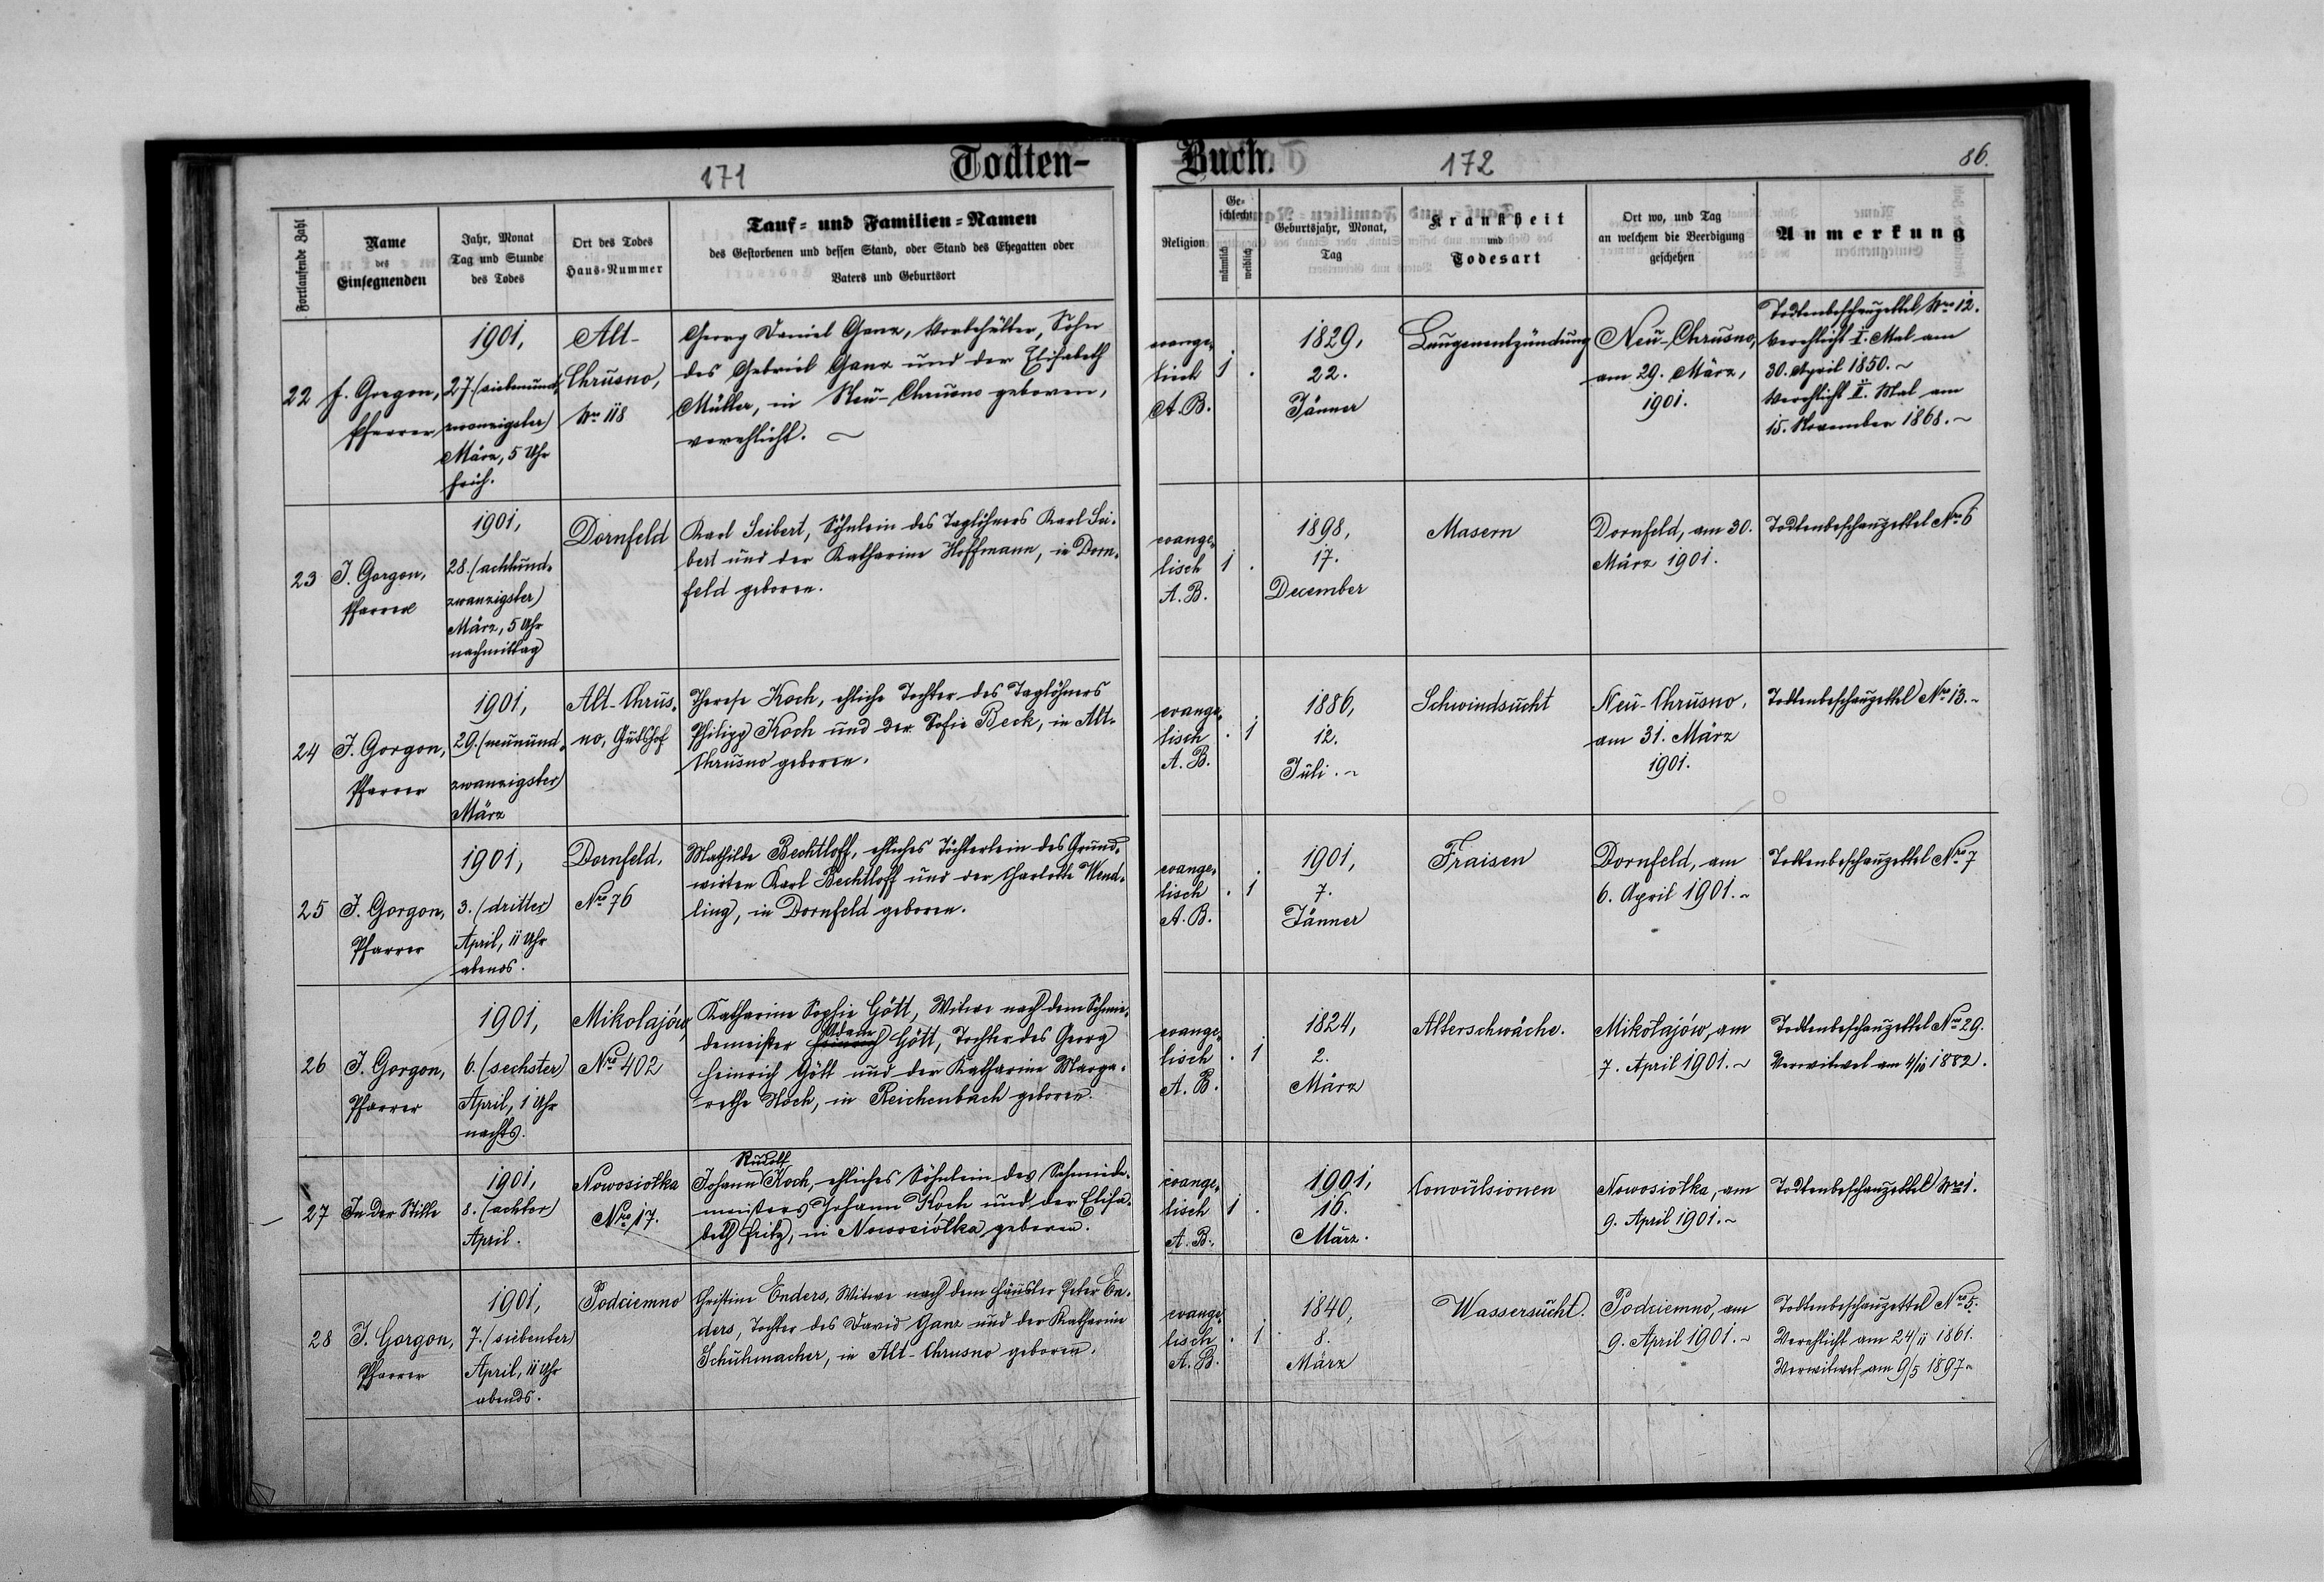 171
Todten-
Fortlaufende Zahl
Name
des
Einsegnenden
Jahr, Monat
Tag und Stunde
des Todes
Ort des Todes
Haus-Nummer
Tauf- und Familien-Namen
des Gestorbenen und dessen Stand, oder Stand des Ehegatten oder
Vaters und Geburtsort
22
J. Gorgon,
Pfarrer
1901,
27. (siebenund-
zwanzigster)
März, 5 Uhr
früh.
Alt-
Chrusno,
Nr. 118
Georg Daniel Ganz, Vorbehälter, Sohn
des Gabriel Ganz und der Elisabeth
Müller, in Neu-Chrusno geboren,
verehlicht. ~
23
J. Gorgon,
Pfarrer
1901,
28. (achtund-
zwanzigster)
März, 5 Uhr
nachmittag
Dornfeld
Karl Seibert, Söhnlein des Taglöhners Karl Sei-
bert und der Katharina Hoffmann, in Dorn-
feld geboren.
24
J. Gorgon,
Pfarrer
1901,
29. (neunund-
zwanzigster)
März
Alt-Chrus-
no, Gutshof
Therese Koch, ehliche Tochter des Taglöhners
Philipp Koch und der Sofie Beck, in Alt-
Chrusno geboren.
25
J. Gorgon,
Pfarrer
1901,
3. (dritter)
April, 11 Uhr
abends.
Dornfeld,
Nro 76
Mathilde Bechtloff, ehliches Töchterlein des Grund-
wirten Karl Bechtloff und der Charlotte Wend-
ling, in Dornfeld geboren.
26
J. Gorgon,
Pfarrer
1901,
6. (sechster)
April, 1 Uhr
nachts.
Mikolajów,
Nro 402
Katharina Sophie Gött, Witwe nach dem Schmie-
Adam
demeister Heinrich Gött, Tochter des Georg
Heinrich Gött und der Katharina Marga-
rethe Koch, in Reichenbach geboren.
27
In der Stille
1901,
8. (achter)
April.
Nowosiółka
Nro 17.
Rudolf
Johann Koch, ehliches Söhnlein des Schmiede-
meisters Johann Koch und der Elisa-
beth Fritz, in Nowosiółka geboren.
28
J. Gorgon,
Pfarrer
1901,
7. (siebenter)
April, 11 Uhr
abends.
Podciemno
Christine Enders, Witwe nach dem Häusler Peter En-
ders, Tochter des David Ganz und der Katharina
Schuhmacher, in Alt-Chrusno geboren.
Buch.
172
86.
Religion
Ge-
schlecht
männlich
weiblich
Geburtsjahr, Monat,
Tag
Krankheit
und
Todesart
Ort wo, und Tag
an welchem die Beerdigung
geschehen
Anmerkung
evange-
lisch
A. B.
1 .
1829,
22.
Jänner
Lungenentzündung
Neu-Chrusno,
am 29. März,
1901.
Todtenbeschauzettel Nro 12.
Verehlicht I. Mal am
30. April 1850. ~
Verehlicht II. Mal am
15. November 1868. ~
evange-
lisch
A. B.
1 .
1898,
17.
December
Masern
Dornfeld, am 30.
März 1901.
Todtenbeschauzettel Nro 6
evange-
lisch
A. B.
. 1
1886,
12.
Juli. ~
Schwindsucht
Neu-Chrusno,
am 31. März
1901.
Todtenbeschauzettel Nro 13. ~
evange-
lisch
A. B.
. 1
1901,
7.
Jänner
Fraisen
Dornfeld, am
6. April 1901. ~
Todtenbeschauzettel Nro 7
evange-
lisch
A. B.
. 1
1824,
2.
März
Altersschwäche.
Mikołajów, am
7. April 1901. ~
Todtenbeschauzettel Nro 29.
Verwitwet am 4/10 1882.
evange-
lisch
A. B.
1 .
1901,
16.
März.
Convulsionen
Nowosiółka, am
9. April 1901. ~
Todtenbeschauzettel Nro 1.
evange-
lisch
A. B.
. 1
1840,
8.
März
Wassersucht.
Podciemno, am
9. April 1901. ~
Todtenbeschauzettel Nro 5.
Verehlicht am 24/11 1861.
Verwitwet am 9/5 1897. ~